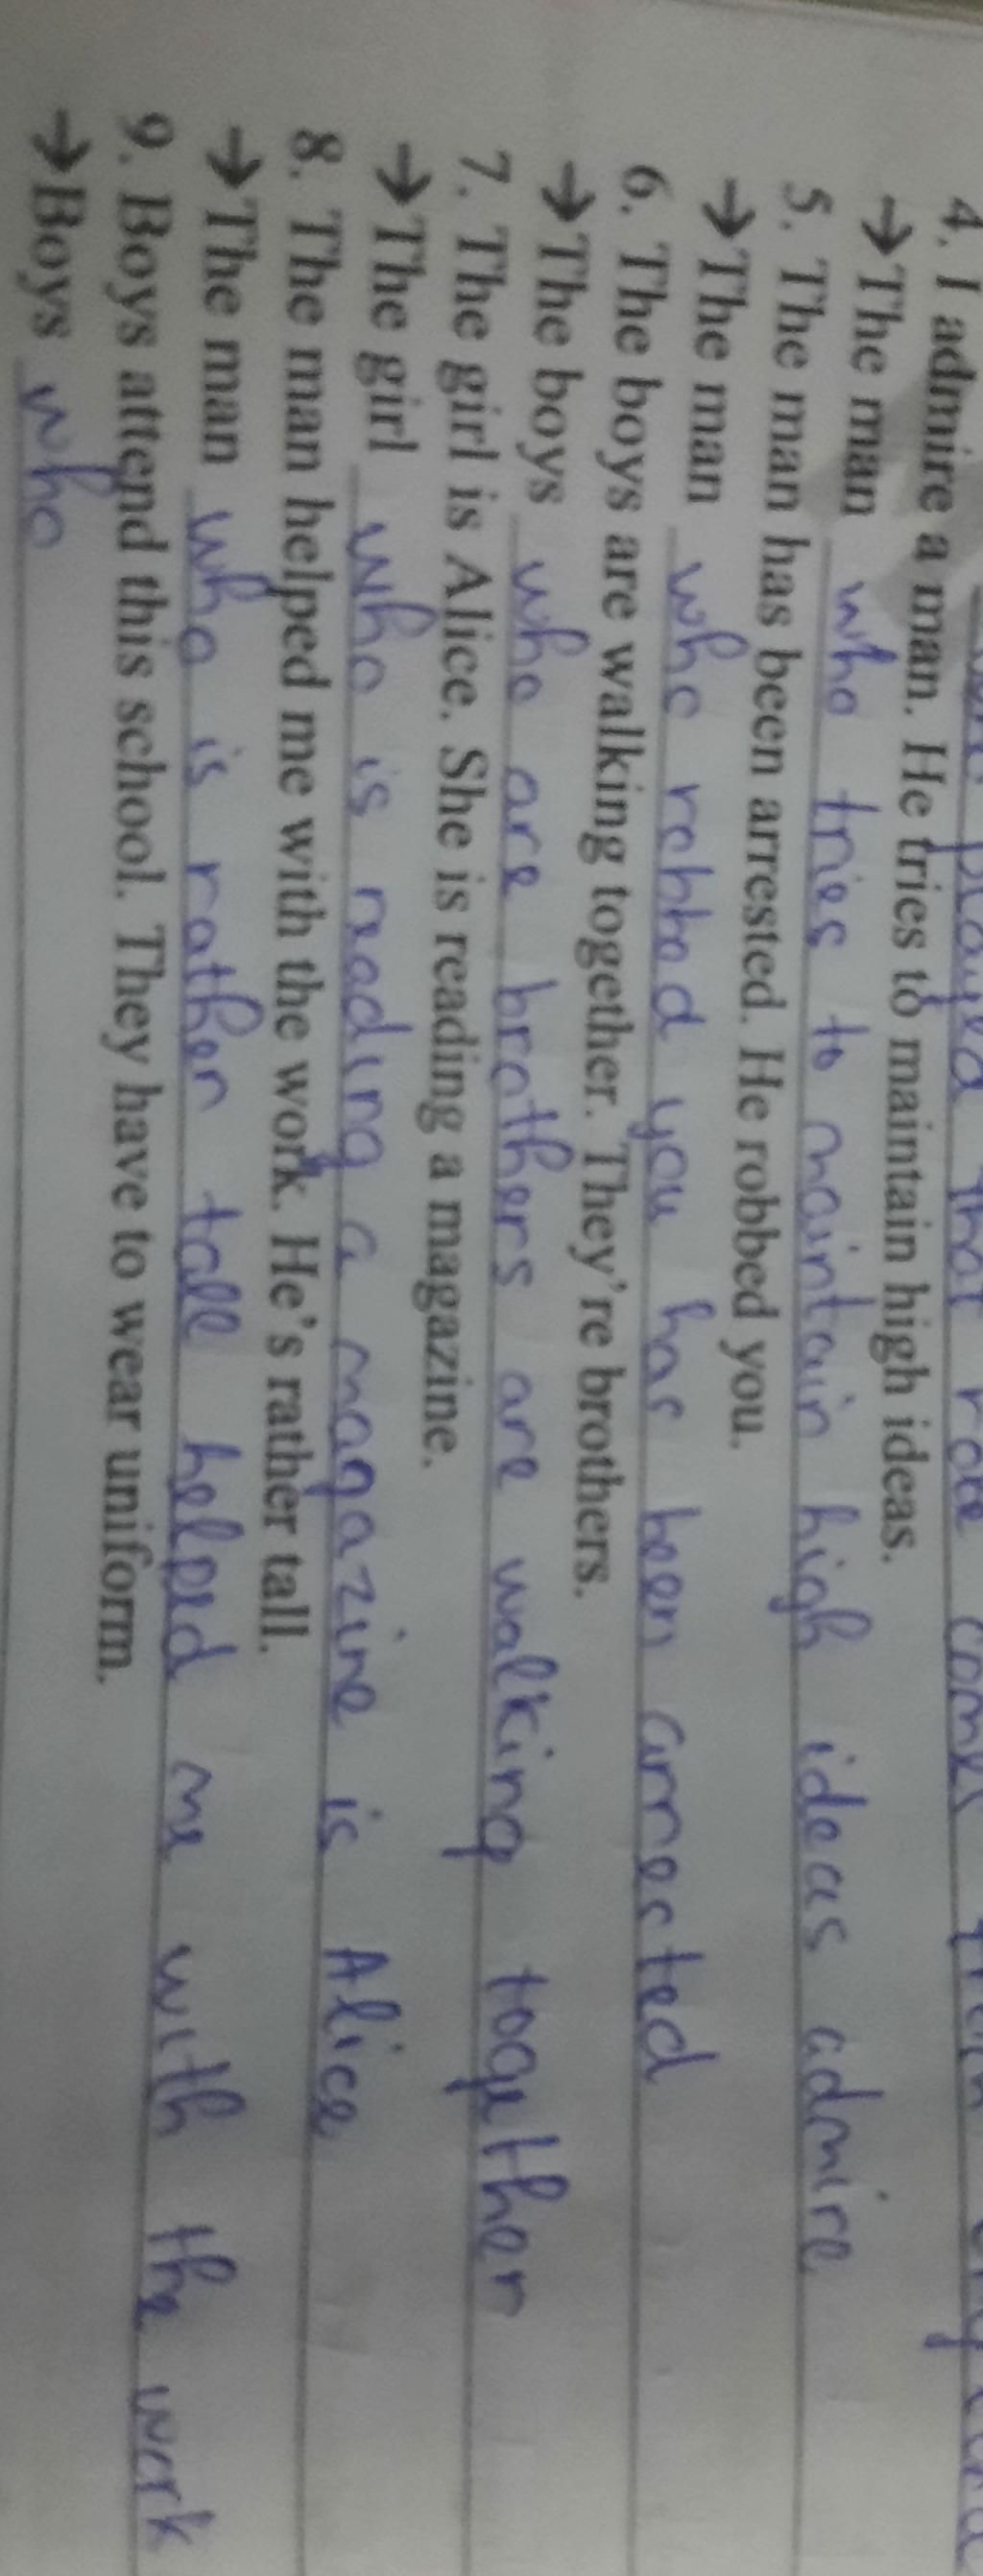 4. I admire a man. He tries to maintain high ideas.
→The man who tries to maintain high ideas admire
5. The man has been arrested. He robbed you.
→The man who robbed you has been arrested
6. The boys are walking together. They're brothers.
→The boys who are brothers are walking together
7. The girl is Alice. She is reading a magazine.
→The girl who is reading a magazine is Alice
8. The man helped me with the work. He's rather tall.
→The man who is rather tall helped me with the work
9. Boys attend this school. They have to wear uniform.
→Boys who